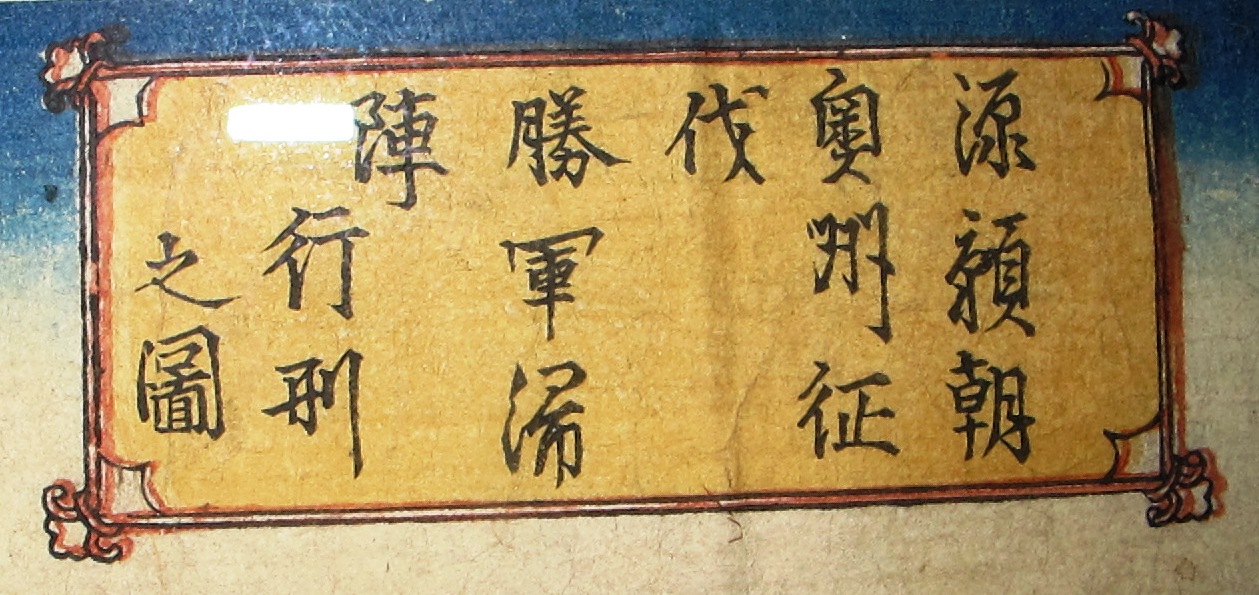 源頼朝
奥州征
伐
勝軍帰
陣
行列
之圖